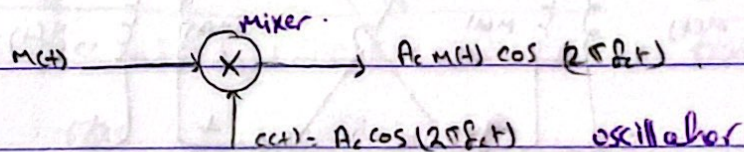 Mixer.
m(t) × Ac m(t) cos (2πfct).
c(t) = Ac cos (2πfct) oscillator